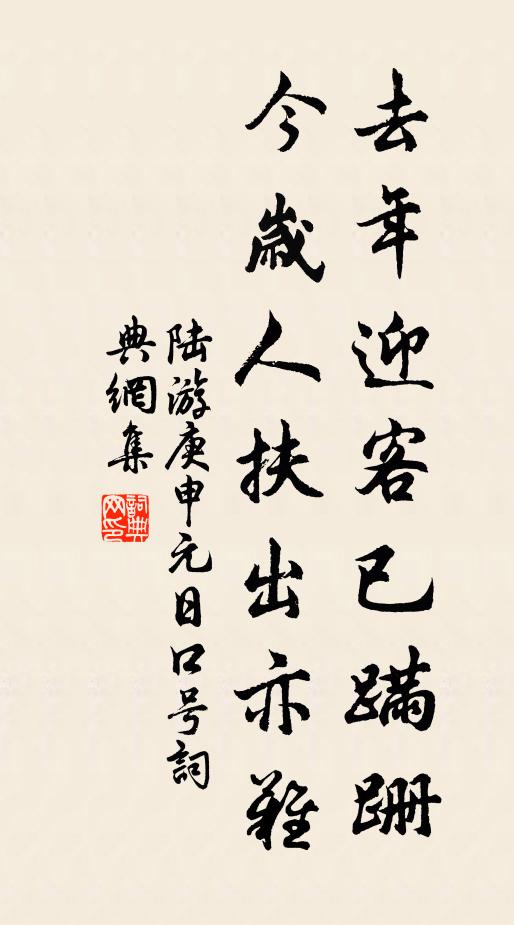 去年迎客已蹣跚
今歲人扶出亦難
陸游庚申元日口号詞
典網集
詞典網印